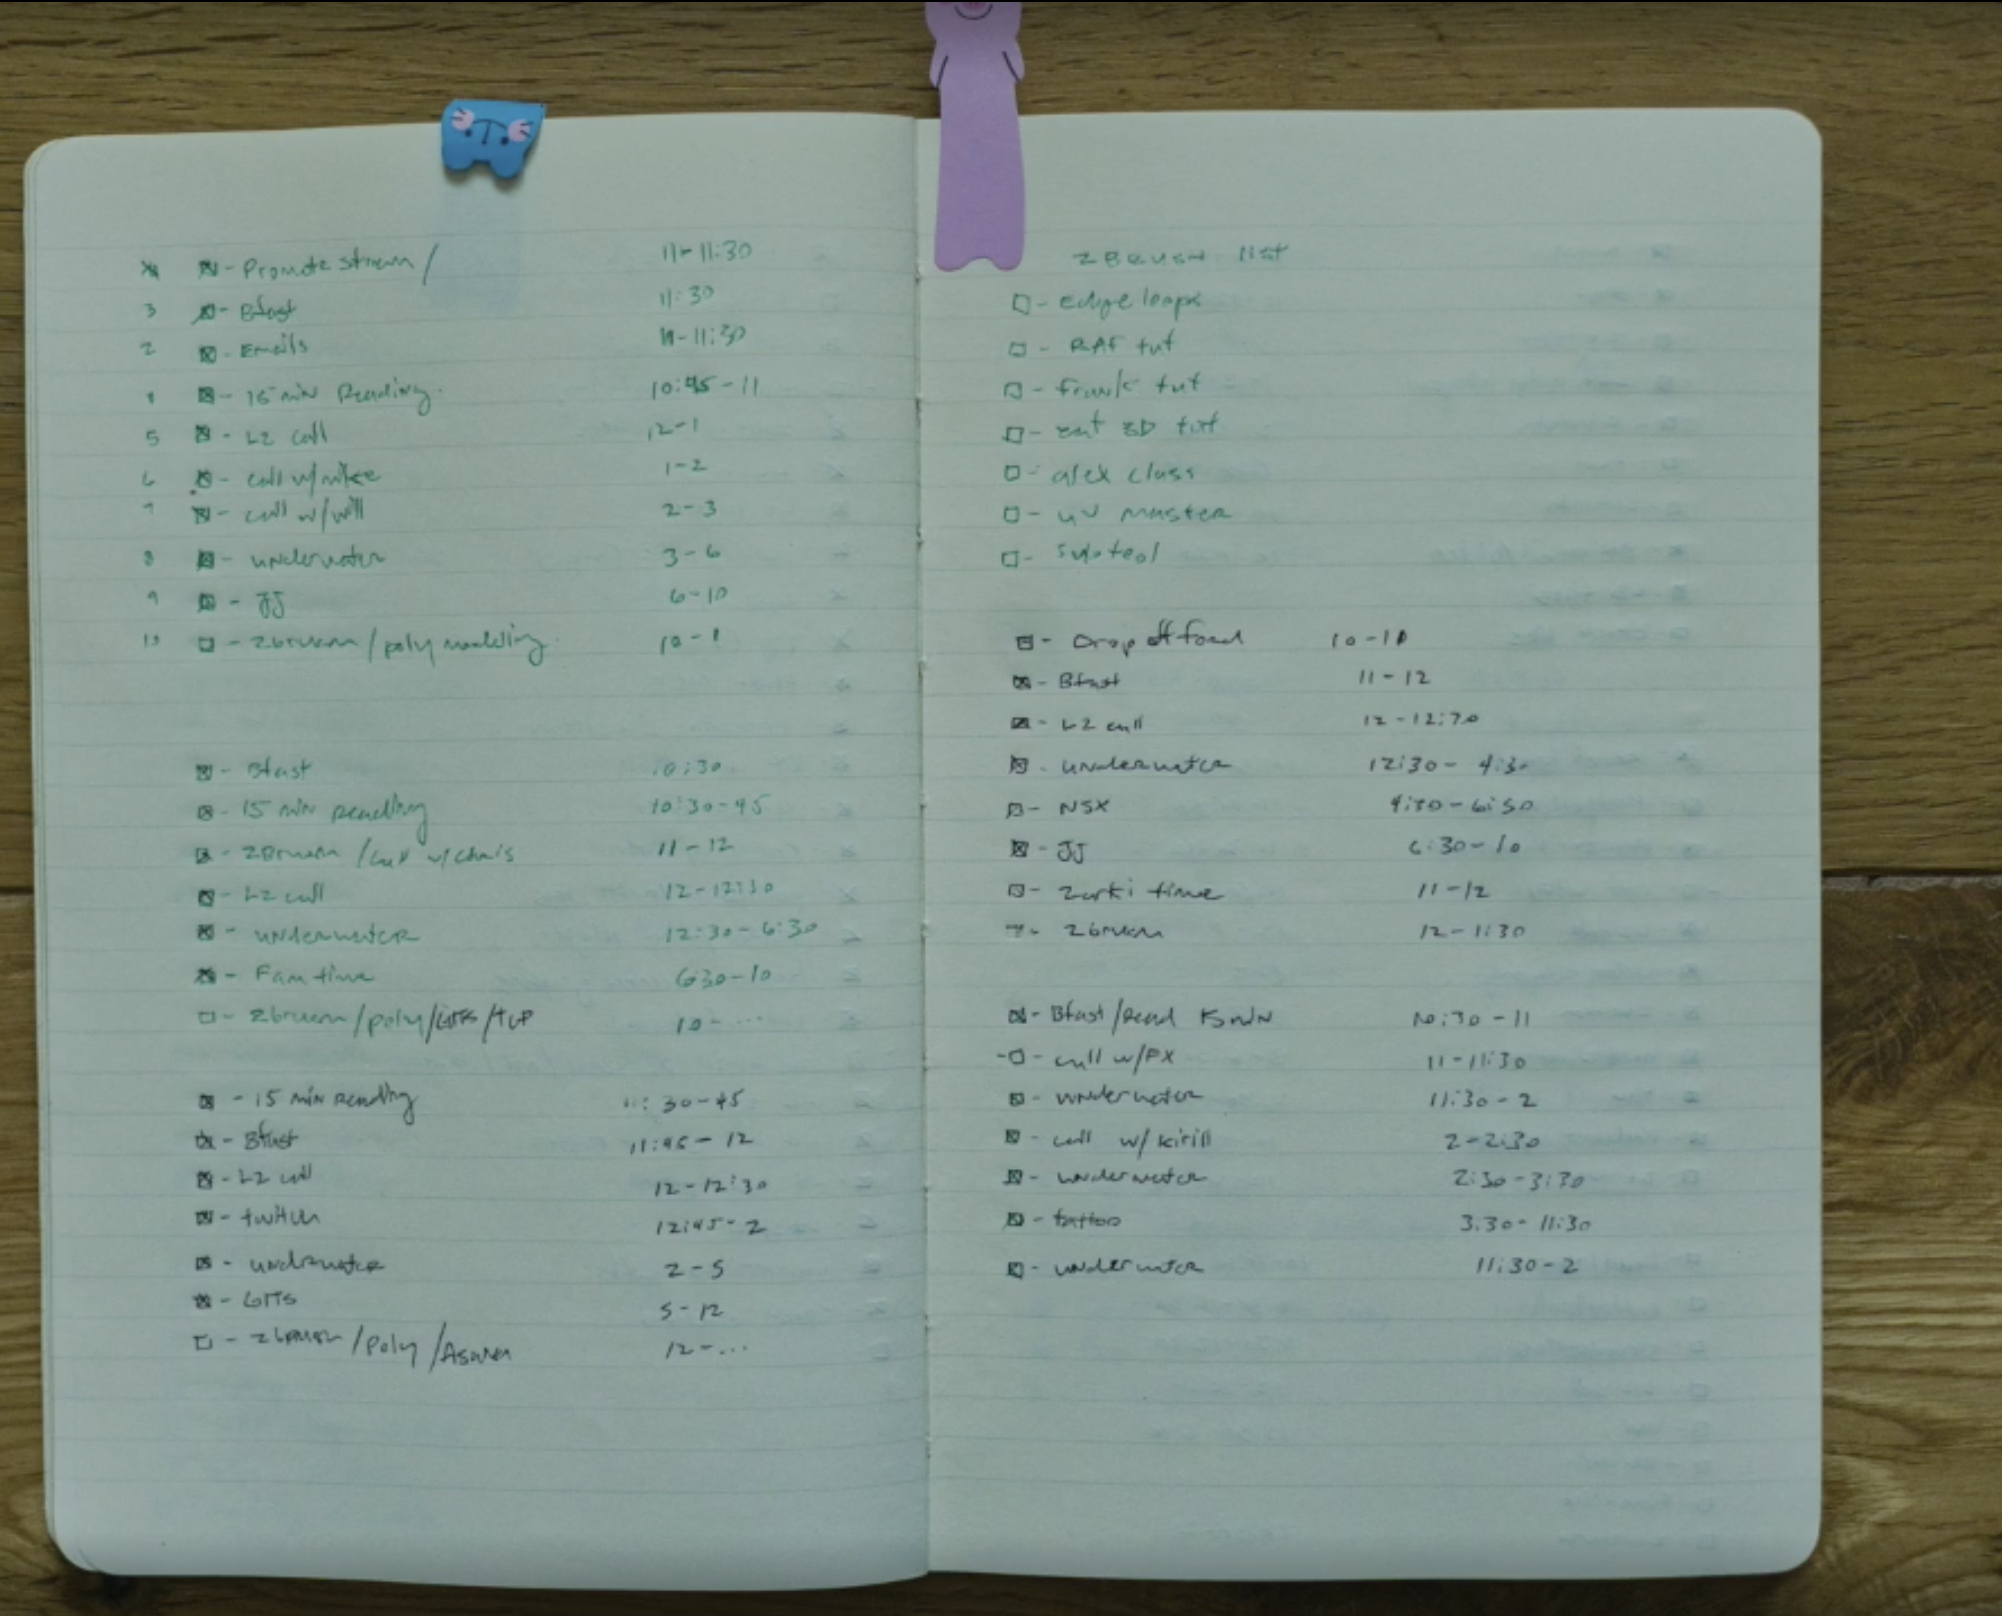 Promote stream / 11-11:30
3 - Bfast 11:30
2 - Emails 11-11:30
1 - 15 min Reading. 10:45-11
5 - L2 call 12-1
6 - call w/mike 1-2
7 - call w/will 2-3
8 - underwater 3-6
9 - JJ 6-10
10 - Zbrush/poly modeling. 10-1
- Bfast 10:30
- 15 min Reading 10:30-45
- ZBrush /call w/Chris 11-12
- L2 call 12-12:30
- underwater 12:30-6:30
- Fam time 630-10
- Zbrush/poly/GITS/TCP 10-...
- 15 min Reading 11:30-45
- Bfast 11:45-12
- L2 call 12-12:30
- twitch 12:45-2
- underwater 2-5
- GITS 5-12
- Zbrush/Poly/ 12-...
ZBRUSH list
- Edge loops
- RAF tut
- frank tut
- 3D tut
- alex class
- UV master
- Subtool
- Drop off food 10-11
- Bfast 11-12
- L2 call 12-12:30
- underwater 12:30-4:30
- NSX 4:30-6:30
- JJ 6:30-10
- time 11-12
- Zbrush 12-1:30
- Bfast/Read 15min 10:30-11
- call w/PX 11-11:30
- underwater 11:30-2
- call w/Kirill 2-2:30
- underwater 2:30-3:30
- tattoo 3:30-11:30
- underwater 11:30-2